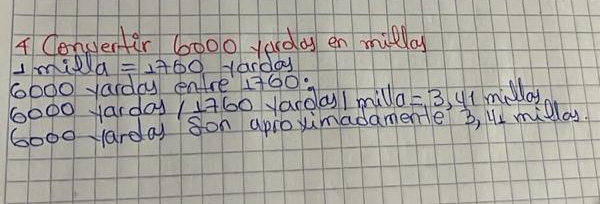 4 Convertir 6000 yardas en millas
1 milla = 1760 yardas
6000 yardas entre 1760:
6000 yardas / 1760 yardas/milla = 3,41 millas
6000 yardas son aproximadamente 3,41 millas.